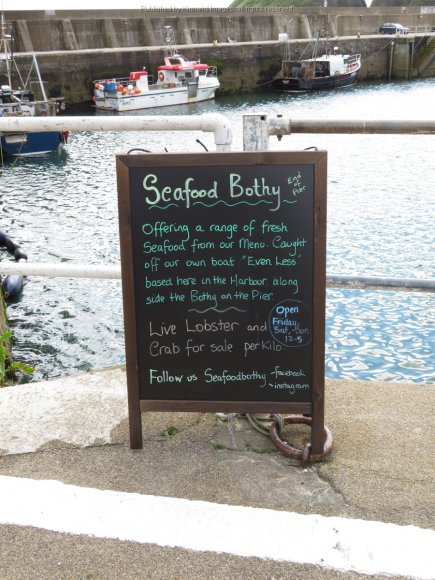 Published by Kirmani Images - all rights reserved
Seafood Bothy
End
of
Pier
Offering a range of fresh
Seafood from our Menu. Caught
off our own boat "Even Less"
based here in the Harbour along
side the Bothy on the Pier
Live Lobster and
Crab for sale per Kilo
Open
Friday,
Sat, Sun,
12-5
Follow us Seafoodbothy - facebook
- instagram